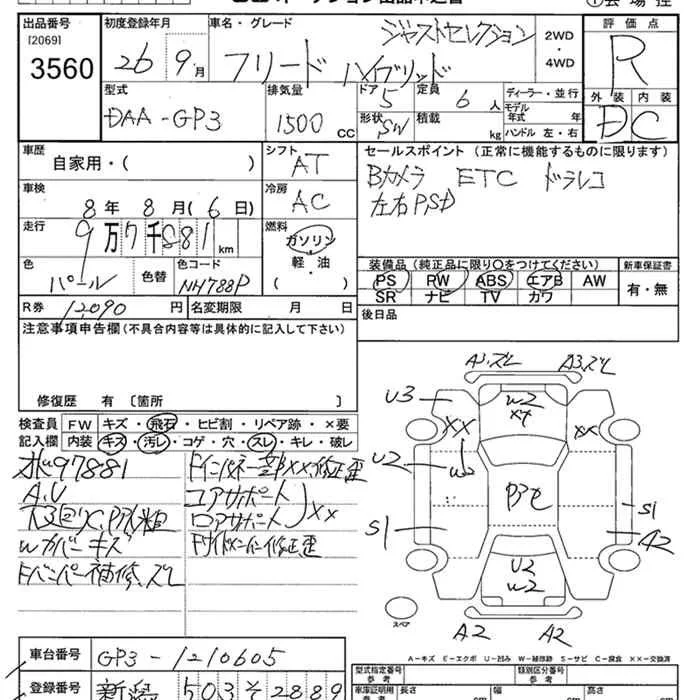 出品番号 初度登録年月 車名・グレード ジャストセレクション 2WD・4WD 評価点
[2069]
3560 26 9月 フリード ハイブリッド R
型式 排気量 ドア 定員 ディーラー・並行 外装 内装
DAA-GP3 1500 CC 5 6人 モデル年式 年 D C
形状 SW 積載 kg ハンドル 左・右
車歴 自家用・( ) シフト AT セールスポイント (正常に機能するものに限ります)
車検 8年8月(6日) 冷房 AC Bカメラ ETC ドラレコ
左右PSD
走行 9万7千881km 燃料 ガソリン・軽・油( )
色 パール 色替 色コード NH788P
装備品 (純正品に限り○をつけてください) 新車保証書
PS PW ABS エアB AW 有・無
SR ナビ TV カワ
R券 12,090円 名変期限 月 日 後日品
注意事項申告欄(不具合内容等は具体的に記入して下さい)
修復歴 有 〔箇所 〕
検査員 FW キズ・飛石・ヒビ割・リペア跡・×要
記入欄 内装 キズ・汚レ・コゲ・穴・スレ・キレ・破レ
97881
A.U
コアサポート
ロアサポート XX
Wカバーキズ
Fバンパー補修、ズレ
A3.ズレ
U3 W2 XX
XX XX
U2
S1 S1
A2
U2
W2
スペア
A2 A2
A-キズ E-エクボ U-凹み W-補修跡 S-サビ C-腐食 XX-交換済
車台番号 GP3-1210605
型式指定番号 参考 類別区分番号 参考
登録番号 新潟 503 そ 2889
車庫証明用 長さ cm 幅 cm 高さ cm